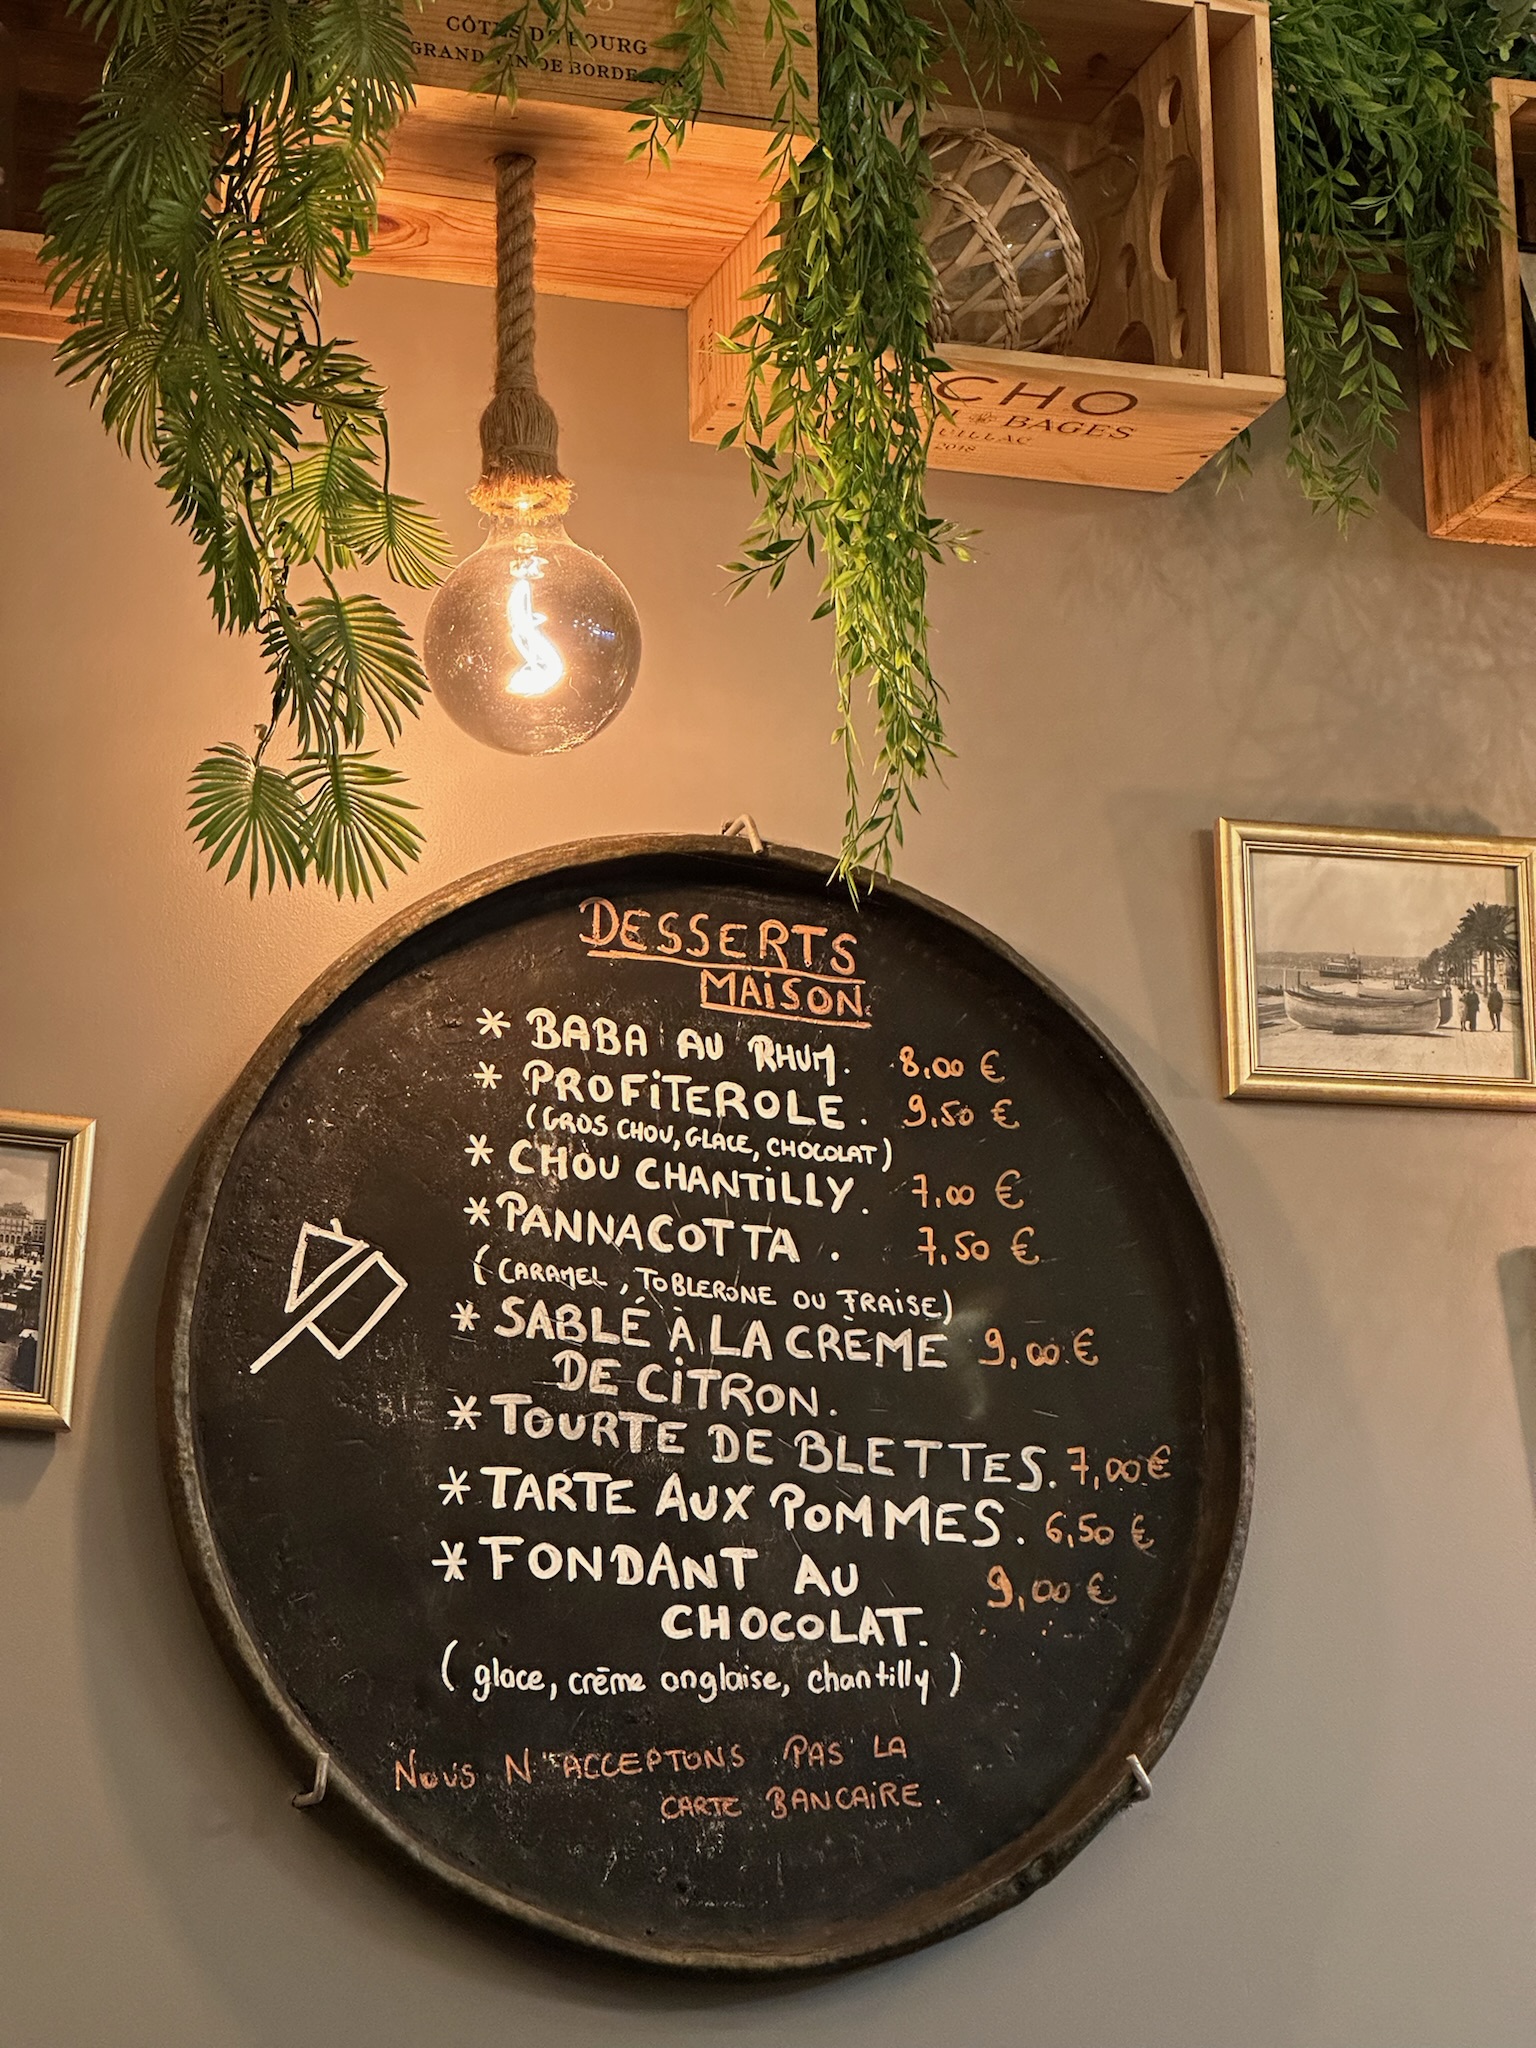 CÔTES DE BOURG
GRAND VIN DE BORDEAUX
CHO
BAGES
2018
DESSERTS
MAISON.
* BABA AU RHUM. 8,00 €
* PROFITEROLE. 9,50 €
(GROS CHOU, GLACE, CHOCOLAT)
* CHOU CHANTILLY. 7,00 €
* PANNACOTTA. 7,50 €
(CARAMEL, TOBLERONE OU FRAISE)
* SABLÉ À LA CRÈME 9,00 €
DE CITRON.
* TOURTE DE BLETTES. 7,00 €
* TARTE AUX POMMES. 6,50 €
* FONDANT AU 9,00 €
CHOCOLAT.
(glace, crème anglaise, chantilly)
NOUS N'ACCEPTONS PAS LA
CARTE BANCAIRE.